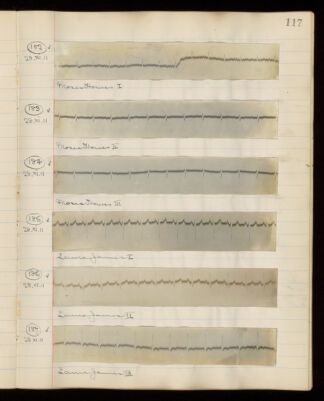 117
182
28.XI.11
Moses Howes I
183
28.XI.11
Moses Howes II
184
28.XI.11
Moses Howes III
185
28.XI.11
Laura James I
186
28.XI.11
Laura James II
187
28.XI.11
Laura James III